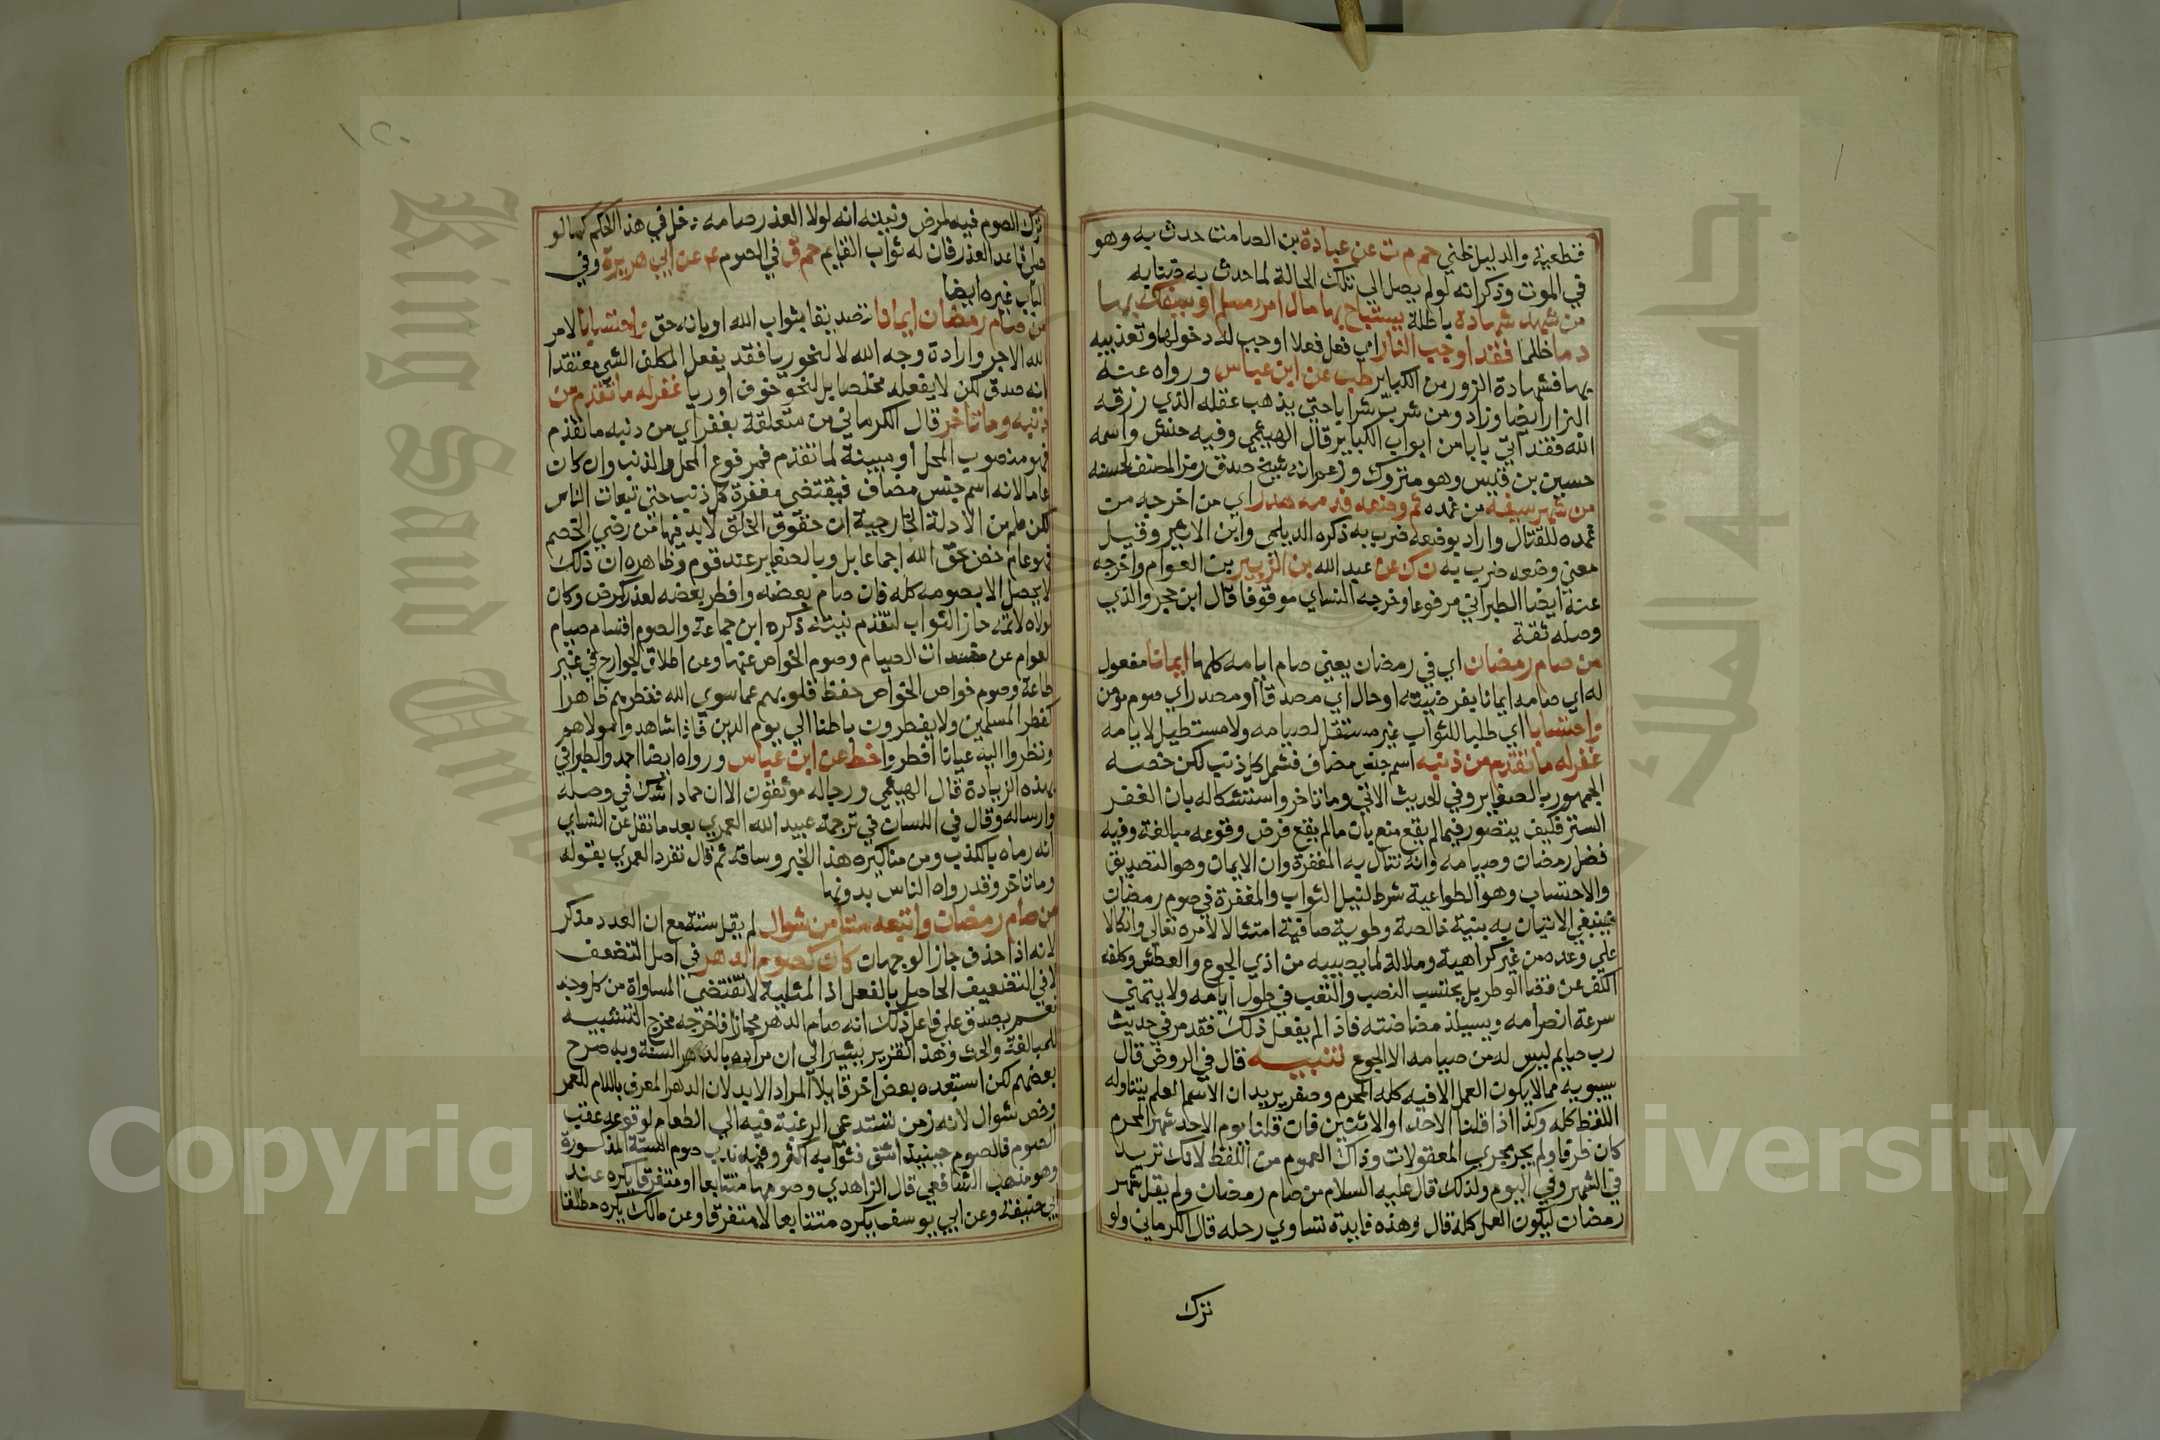 فقطعية والدليل ظني حم م ت عن عبادة بن الصامت حدث به وهو
في الموت وذكر انه لو لم يصل الي تلك الحالة لما حدث به
من شهد شهادة باطلة يستباح بها مال امرء مسلم او يسفك بها
دما ظلما فقد اوجب النار اي فعل فعلا اوجب له دخولها وتعذيبه
بها فشهادة الزور من الكباير طب عن ابن عباس ورواه عنه
البزار ايضا وزاد ومن شرب شرابا حتي يذهب عقله الذي رزقه
الله فقد اتي بابا من ابواب الكباير قال الهيثمي وفيه حنش واسمه
حسين بن قيس وهو متروك وزعم انه شيخ صدق رمز المصنف لحسنه
من شهر سيفه من غمده ثم وضعه فدمه هدر اي من اخرجه من
غمده للقتال واراد بوضعه ضرب به ذكره الديلمي وابن الاثير وقيل
معني وضعه ضرب به ن ك عن عبد الله بن الزبير بن العوام واخرجه
عنه ايضا الطبراني مرفوعا وخرجه النساي موقوفا قال ابن حجر والذي
وصله ثقة
من صام رمضان اي في رمضان يعني صام ايامه كلها ايمانا مفعول
له اي صامه ايمانا بفرضيته او حال اي مصدقا او مصدر اي صوم مومن
واحتسابا اي طلبا للثواب غير مستثقل لصيامه ولا مستطيل لايامه
غفر له ما تقدم من ذنبه اسم جنس مضاف فشمل كل ذنب لكن خصه
الجمهور بالصغاير وفي الحديث الاتي وما تاخر واستشكاله بان الغفر
الستر فكيف يتصور فيما لم يقع منع بان ما لم يقع فرض وقوعه مبالغة وفيه
فضل رمضان وصيامه وانه تنال به المغفرة وان الايمان وهو التصديق
والاحتساب وهو الطواعية شرط لنيل الثواب والمغفرة في صوم رمضان
فينبغي الاتيان به بنية خالصة وطوية صافية امتثالا لامره تعالي واتكالا
علي وعده من غير كراهية وملالة لما يصيبه من اذي الجوع والعطش وكلفة
الكف عن قضا الوطر بل يحتسب النصب والتعب في طول ايامه ولا يتمني
سرعة انصرامه ويستلذ مضاضته فاذا لم يفعل ذلك فقد مر في حديث
رب صايم ليس له من صيامه الا الجوع تنبيه قال في الروض قال
سيبويه مما لا يكون العمل الا فيه كله المحرم وصفر يريد ان الاسم العلم يتناوله
اللفظ كله وكذا اذا قلنا الاحد او الاثنين فان قلنا يوم الاحد شهر المحرم
كان ظرفا ولم يجر مجري المعقولات وذاك العموم من اللفظ لانك تريد
في الشهر وفي اليوم ولذلك قال عليه السلام من صام رمضان ولم يقل شهر
رمضان ليكون العمل كله قال وهذه فايدة تساوي رحله قال الكرماني ولو
ترك
ترك الصوم فيه لمرض ونيته انه لولا العذر صامه دخل في هذا الحكم كما لو
صلي قاعدا لعذر فان له ثواب القايم حم ق في الصوم عن ابي هريرة وفي
الباب غيره ايضا
من صام رمضان ايمانا تصديقا بثواب الله او بانه حق واحتسابا لامر
الله الاجر وارادة وجه الله لا لنحو ريا فقد يفعل المكلف الشي معتقدا
انه صدق لكن لا يفعله مخلصا بل لنحو خوف او ريا غفر له ما تقدم من
ذنبه وما تاخر قال الكرماني من متعلقة بغفر اي من ذنبه ما تقدم
فهو منصوب المحل او مبينة لما تقدم فمرفوع المحل والذنب وان كان
عاما لانه اسم جنس مضاف فيقتضي مغفرة كل ذنب حتي تبعات الناس
لكن علم من الادلة الخارجية ان حقوق الخلق لا بد فيها من رضي الخصم
فهو عام خص بحق الله اجماعا بل وبالصغاير عند قوم وظاهره ان ذلك
لا يحصل الا بصومه كله فان صام بعضه وافطر بعضه لعذر كمرض وكان
لولاه لاتمه حاز الثواب لتقدم نيته ذكره ابن جماعة والصوم اقسام صيام
العوام عن مفسدات الصيام وصوم الخواص عنها وعن اطلاق الجوارح في غير
طاعة وصوم خواص الخواص حفظ قلوبهم عما سوي الله ففطرهم ظاهرا
كفطر المسلمين ولا يفطرون باطنا الي يوم الدين فاذا شاهدوا مولاهم
ونظروا اليه عيانا افطروا خط عن ابن عباس ورواه ايضا احمد والطبراني
بهذه الزيادة قال الهيثمي ورجاله موثقون الا ان حمادا شك في وصله
وارساله وقال في اللسان في ترجمة عبيد الله العمري بعد ما نقل عن النساي
انه رماه بالكذب ومن مناكيره هذا الخبر وساقه ثم قال تفرد العمري بقوله
وما تاخر وقد رواه الناس بدونها
من صام رمضان واتبعه ستا من شوال لم يقل ستة مع ان العدد مذكر
لانه اذا حذف جاز الوجهان كان كصوم الدهر في اصل التضعيف
لا في التضعيف الحاصل بالفعل اذ المثلية لا تقتضي المساواة من كل وجه
نعم يصدق علي فاعل ذلك انه صام الدهر مجازا فاخرجه مخرج التشبيه
للمبالغة والحث وهذا التقرير يشير الي ان مراده بالدهر السنة وبه صرح
بعضهم لكن استبعده بعض اخر قايلا المراد الابد لان الدهر المعرف باللام للعمر
وخص شوال لانه زمن تستدعي الرغبة فيه الي الطعام لوقوعه عقب
الصوم فالصوم حينيذ اشق فثوابه اكثر وفيه ندب صوم الستة المذكورة
وهو مذهب الشافعي قال الزاهدي وصومها متتابعا او متفرقا يكره عند
ابي حنيفة وعن ابي يوسف يكره متتابعا لا متفرقا وعن مالك يكره مطلقا
King Saud University
جامعة الملك
Copyright King Saud University